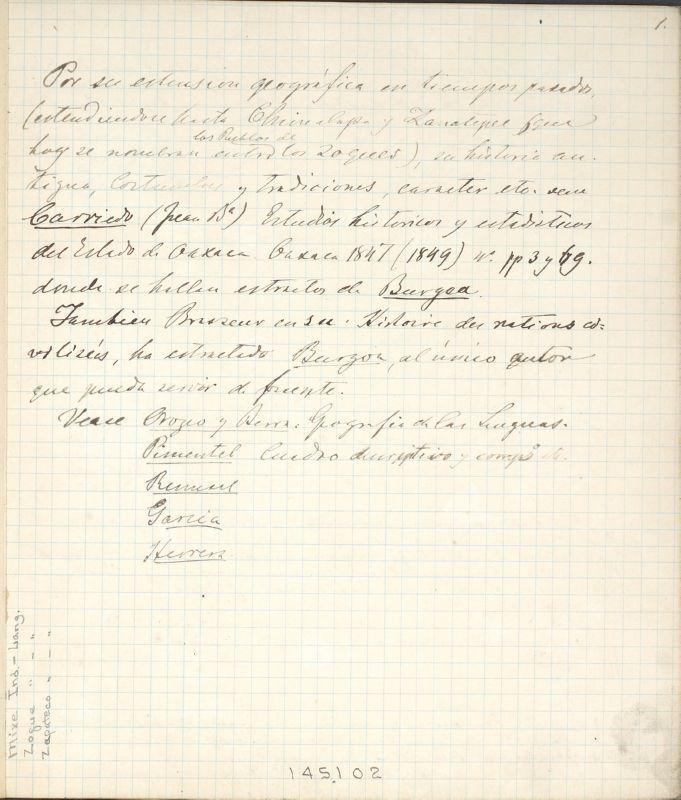 1.
Por su estension geográfica en tiempos pasados,
(estendiendose hasta Chimalapa y Zanatepec (que
los Pueblos de
hoy se nombran entre los Zoques), su historia an-
tigua, Costumbres y tradiciones, caracter etc. vease
Carriedo (Juan Bª) Estudios historicos y estadisticos
del Estado de Oaxaca Oaxaca 1847 (1849) pp 3 y 69.
donde se hallan estractos de Burgoa.
Tambien Brasseur en su: Histoire des nations ci-
vilisées, ha estractado Burgoa, el único autor
que pueda servir de fuente.
Vease Orozco y Berra: Geografia de las Lenguas.
Pimentel Cuadro descriptivo y comp.º etc.
Remesal
Garcia
Herrera
Mixe Ind.- Lang.
Zoque " - "
Zapoteco " - "
145102